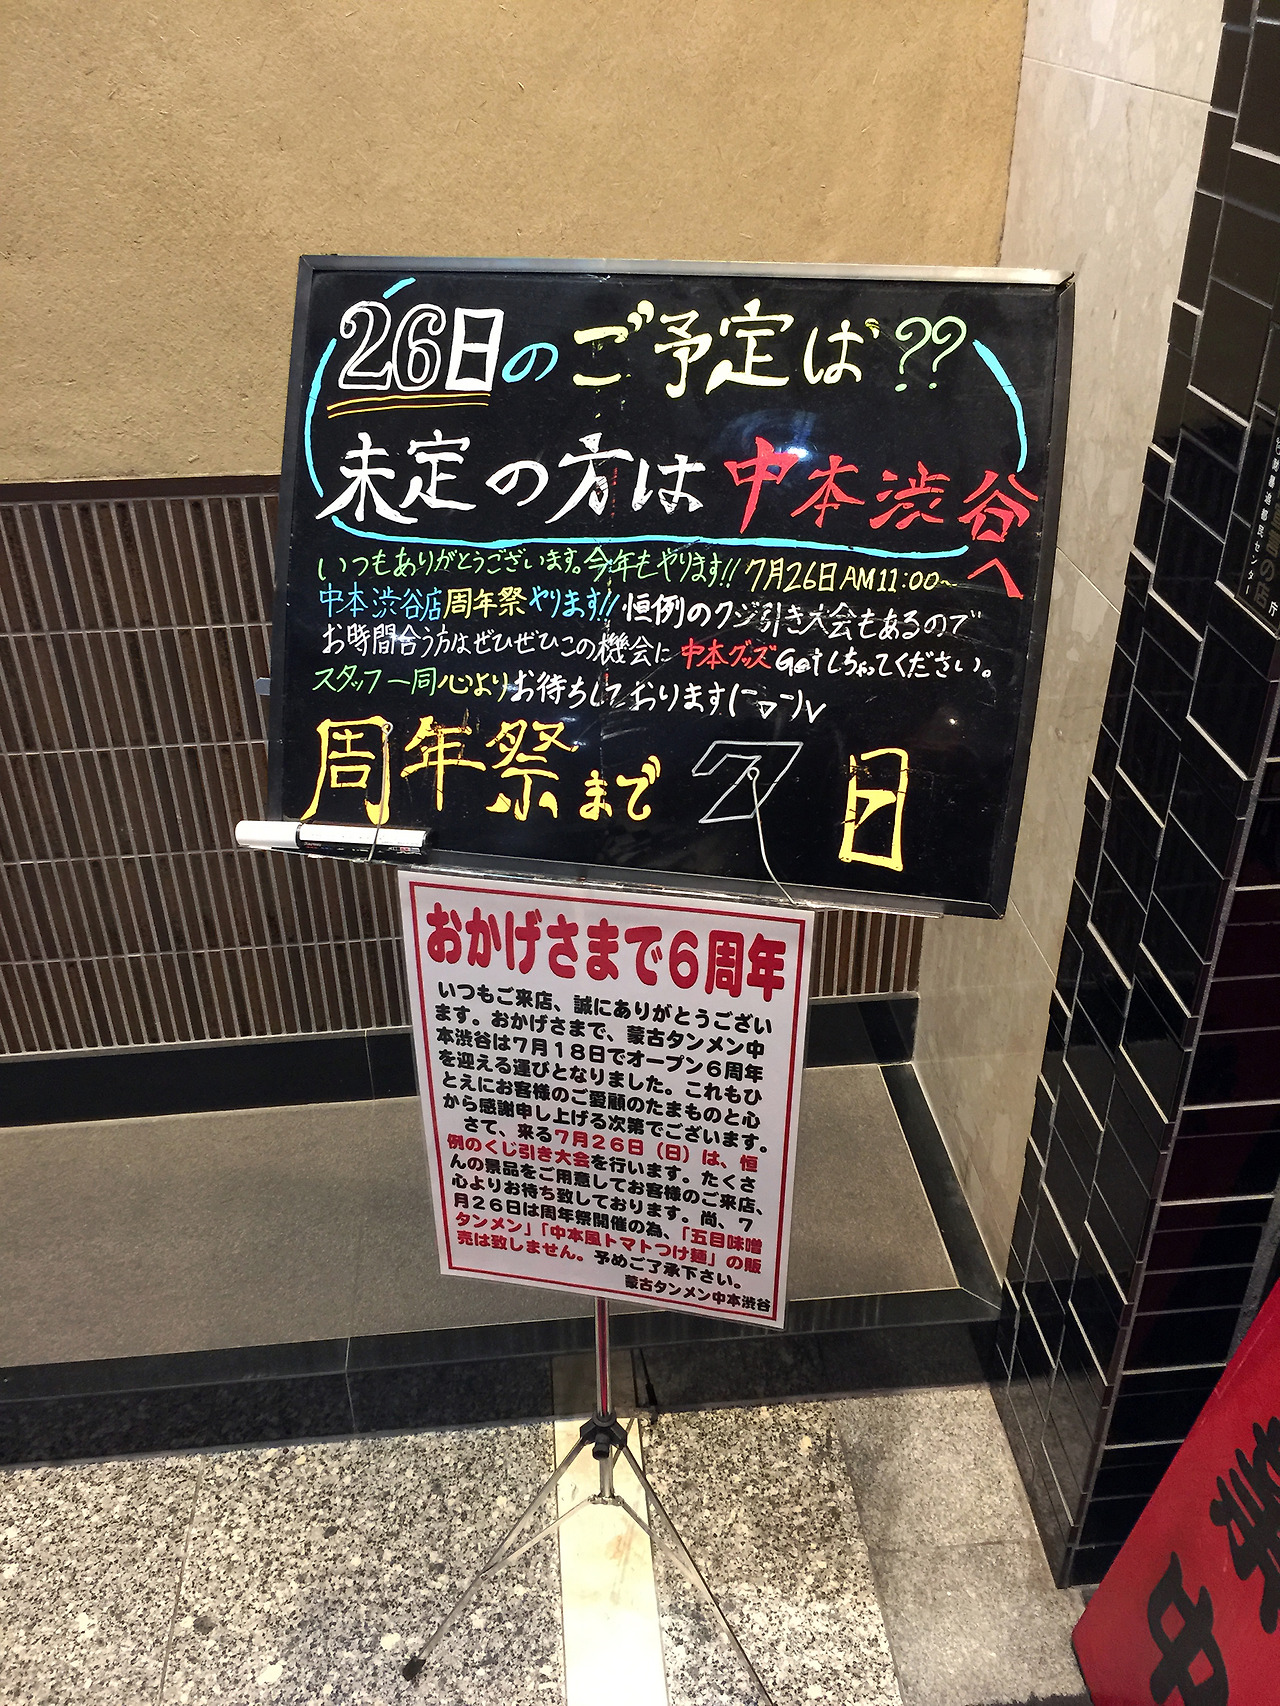 26日のご予定は??
未定の方は中本渋谷へ
いつもありがとうございます。今年もやります!! 7月26日AM11:00~
中本渋谷店周年祭やります!! 恒例のクジ引き大会もあるので
お時間合う方はぜひぜひこの機会に中本グッズGetしちゃってください。
スタッフ一同心よりお待ちしております(ーоー)v
周年祭まで 7日
おかげさまで6周年
いつもご来店、誠にありがとうござい
ます。おかげさまで、蒙古タンメン中
本渋谷は7月18日でオープン6周年
を迎える運びとなりました。これもひ
とえにお客様のご愛顧のたまものと心
から感謝申し上げる次第でございます。
さて、来る7月26日(日)は、恒
例のくじ引き大会を行います。たくさ
んの景品をご用意してお客様のご来店、
心よりお待ち致しております。尚、7
月26日は周年祭開催の為、「五目味噌
タンメン」「中本風トマトつけ麺」の販
売は致しません。予めご了承下さい。
蒙古タンメン中本渋谷
中